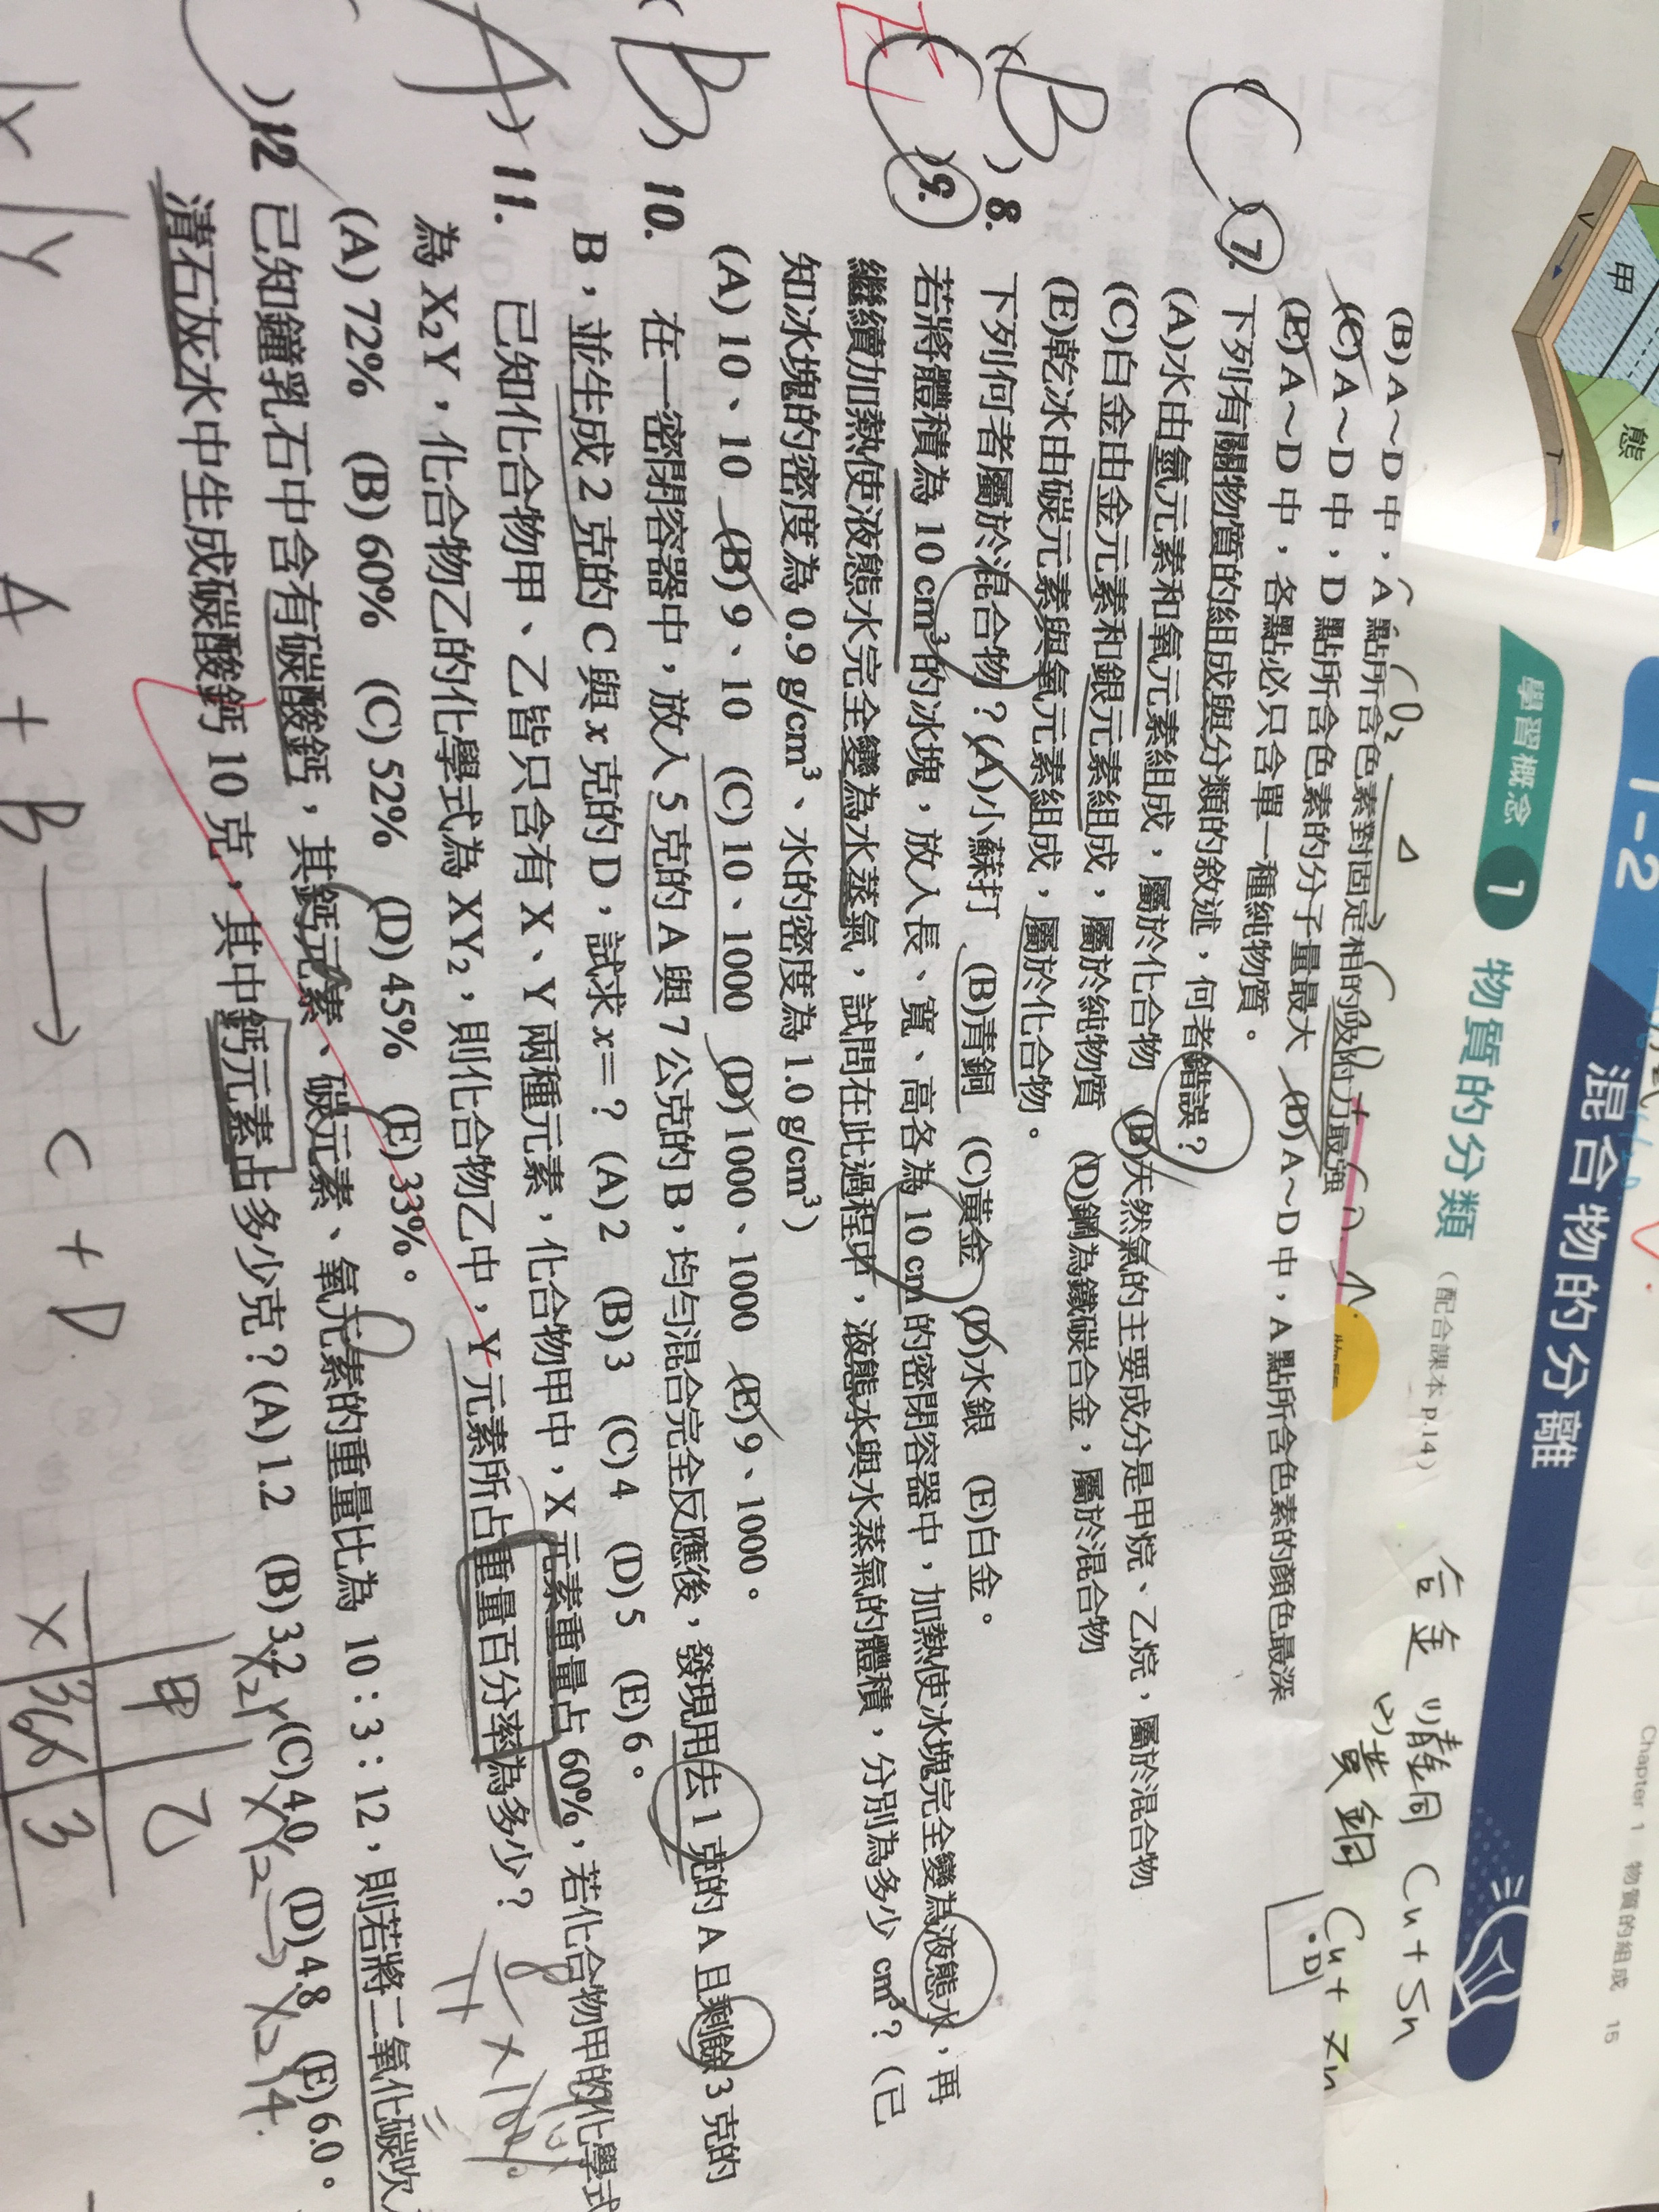 Chapter 1 物質的組成 15
1-2 混合物的分離
學習概念 1 物質的分類 (配合課本 p.14)
合金 (1)青銅 Cu + Sn
(2)黃銅 Cu + Zn
甲
態
(B) A～D 中，A 點所含色素對固定相的吸附力最強
(C) A～D 中，D 點所含色素的分子量最大 (D) A～D 中，A 點所含色素的顏色最深
(E) A～D 中，各點必只含單一種純物質。
•D
C 7. 下列有關物質的組成與分類的敘述，何者錯誤？
(A)水由氫元素和氧元素組成，屬於化合物 (B)天然氣的主要成分是甲烷、乙烷，屬於混合物
(C)白金由金元素和銀元素組成，屬於純物質 (D)鋼為鐵碳合金，屬於混合物
(E)乾冰由碳元素與氧元素組成，屬於化合物。
(B) 8. 下列何者屬於混合物？(A)小蘇打 (B)青銅 (C)黃金 (D)水銀 (E)白金。
) 9. 若將體積為 10 cm³的冰塊，放入長、寬、高各為 10 cm的密閉容器中，加熱使冰塊完全變為液態水，再
繼續加熱使液態水完全變為水蒸氣，試問在此過程中，液態水與水蒸氣的體積，分別為多少 cm³？(已
知冰塊的密度為 0.9 g/cm³、水的密度為 1.0 g/cm³)
(A) 10、10 (B) 9、10 (C) 10、1000 (D) 1000、1000 (E) 9、1000。
(B) 10. 在一密閉容器中，放入 5 克的 A 與 7 公克的 B，均勻混合完全反應後，發現用去 1 克的 A 且剩餘 3 克的
B，並生成 2 克的 C 與 x 克的 D，試求 x=？(A) 2 (B) 3 (C) 4 (D) 5 (E) 6。
A ) 11. 已知化合物甲、乙皆只含有 X、Y 兩種元素，化合物甲中，X 元素重量占 60%，若化合物甲的化學式
為 X₂Y，化合物乙的化學式為 XY₂，則化合物乙中，Y 元素所占重量百分率為多少？
(A) 72% (B) 60% (C) 52% (D) 45% (E) 33%。
) 12 已知鐘乳石中含有碳酸鈣，其鈣元素、碳元素、氧元素的重量比為 10：3：12，則若將二氧化碳吹
清石灰水中生成碳酸鈣 10 克，其中鈣元素占多少克？(A) 1.2 (B) 3.2 (C) 4.0 (D) 4.8 (E) 6.0。
X₂Y XY₂
A + B → C + D
甲 乙
X 3